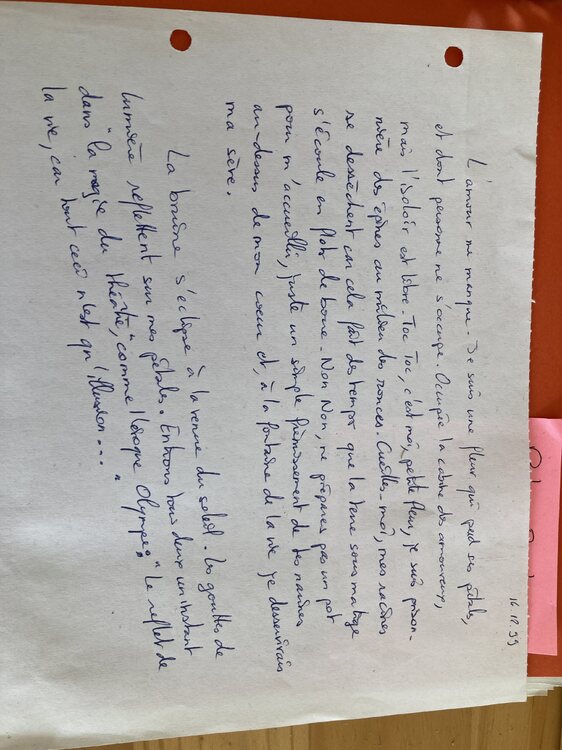 16.12.99
L'amour me manque. Je suis une fleur qui perd ses pétales,
et dont personne ne s'occupe. Occupée la cabine des amoureux,
mais l'isoloir est libre. Toc Toc, c'est moi, petite fleur, je suis prison-
nière des épines au milieu des ronces. Cueilles-moi, mes racines
se dessèchent car cela fait des temps que la terre sous ma tige
s'écoule en flots de boue. Non Non, ne prépares pas un pot
pour m'accueillir, juste un simple frémissement de tes narines
au-dessus de mon coeur et, à la fontaine de la vie je desservirais
ma sève.
La bruine s'éclipse à la venue du soleil. Les gouttes de
lumière reflettent sur mes pétales. Entrons tous deux un instant
dans "la magie du théâtre", comme l'évoque Olympe: "Le reflet de
la vie, car tout ceci n'est qu'illusion..."